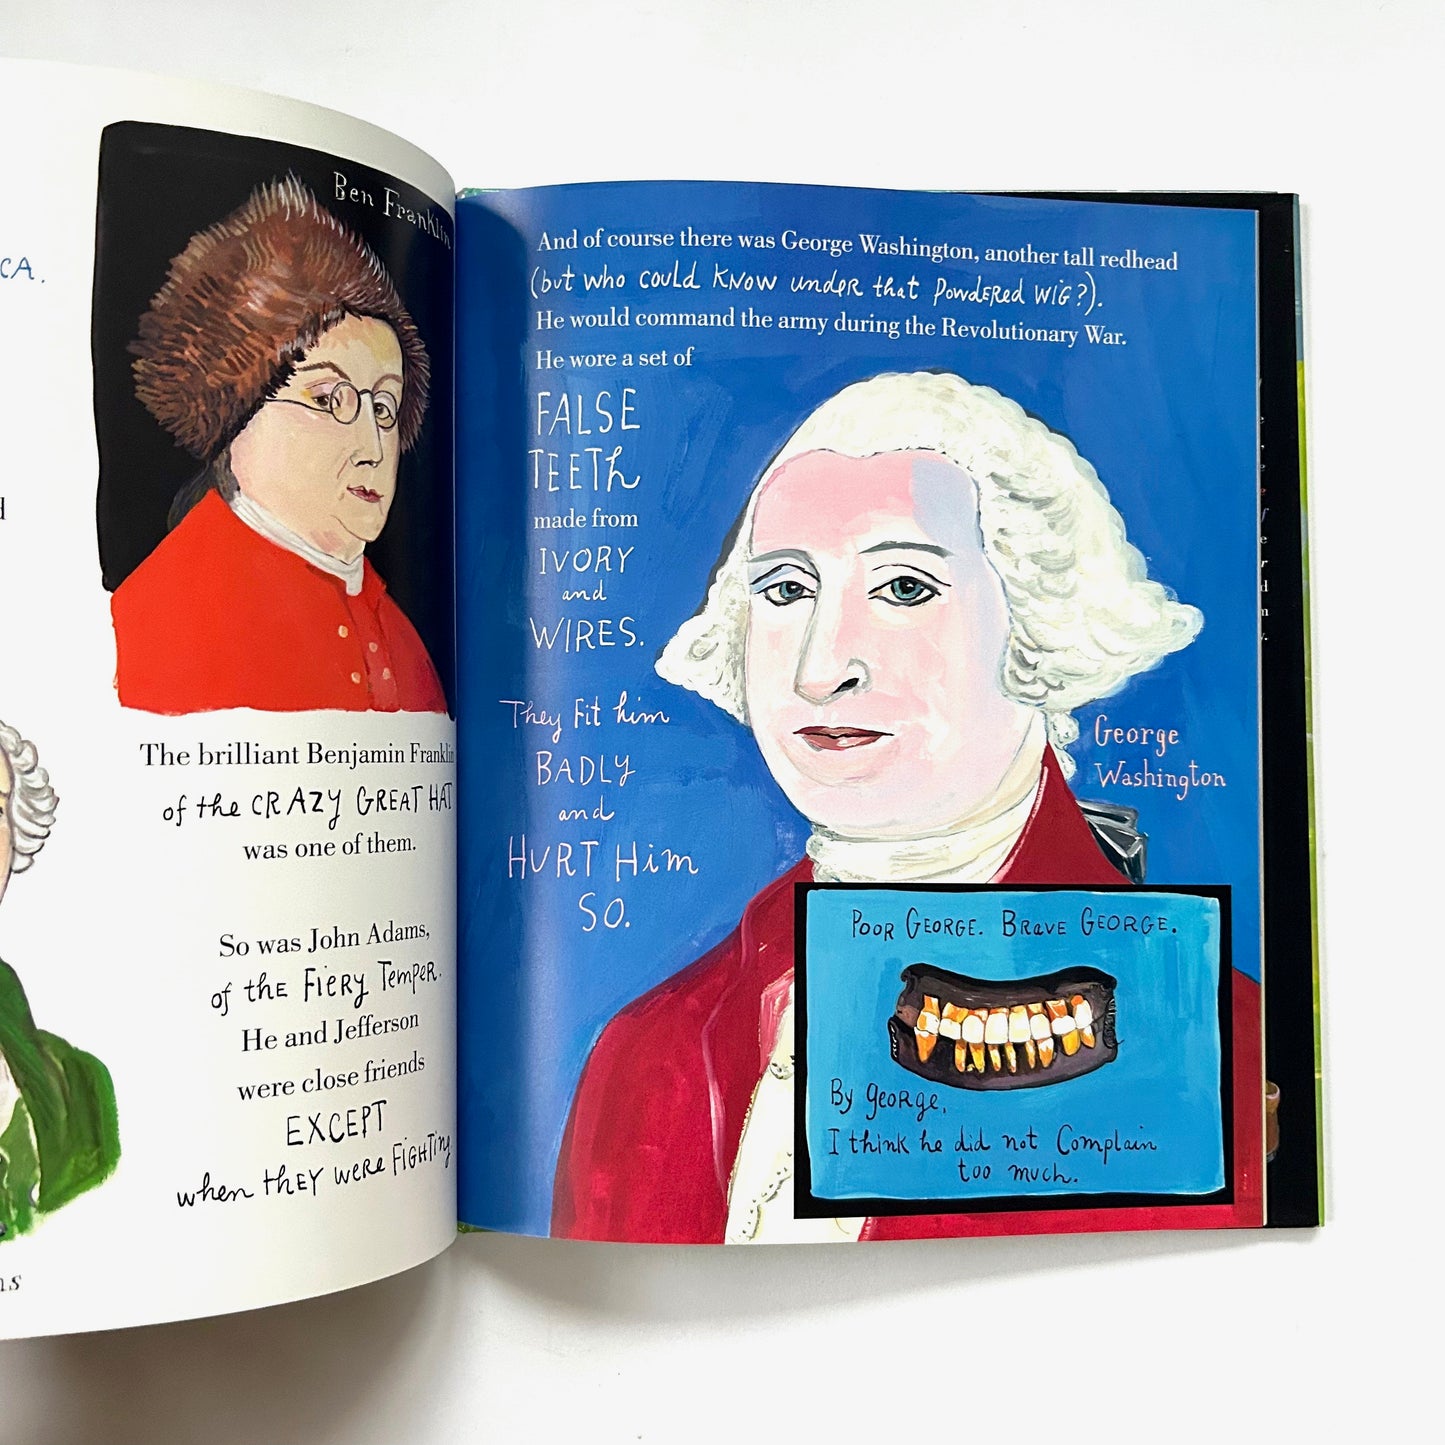 CA.
Ben Franklin
The brilliant Benjamin Franklin
of the CRAZY GREAT HAT
was one of them.
So was John Adams,
of the Fiery Temper.
He and Jefferson
were close friends
EXCEPT
when they were Fighting
And of course there was George Washington, another tall redhead
(but who could know under that Powdered Wig?).
He would command the army during the Revolutionary War.
He wore a set of
FALSE
TEETh
made from
IVORY
and
WIRES.
They Fit him
BADLY
and
HURT Him
SO.
George
Washington
Poor George. Brave George.
By George,
I think he did not Complain
too much.